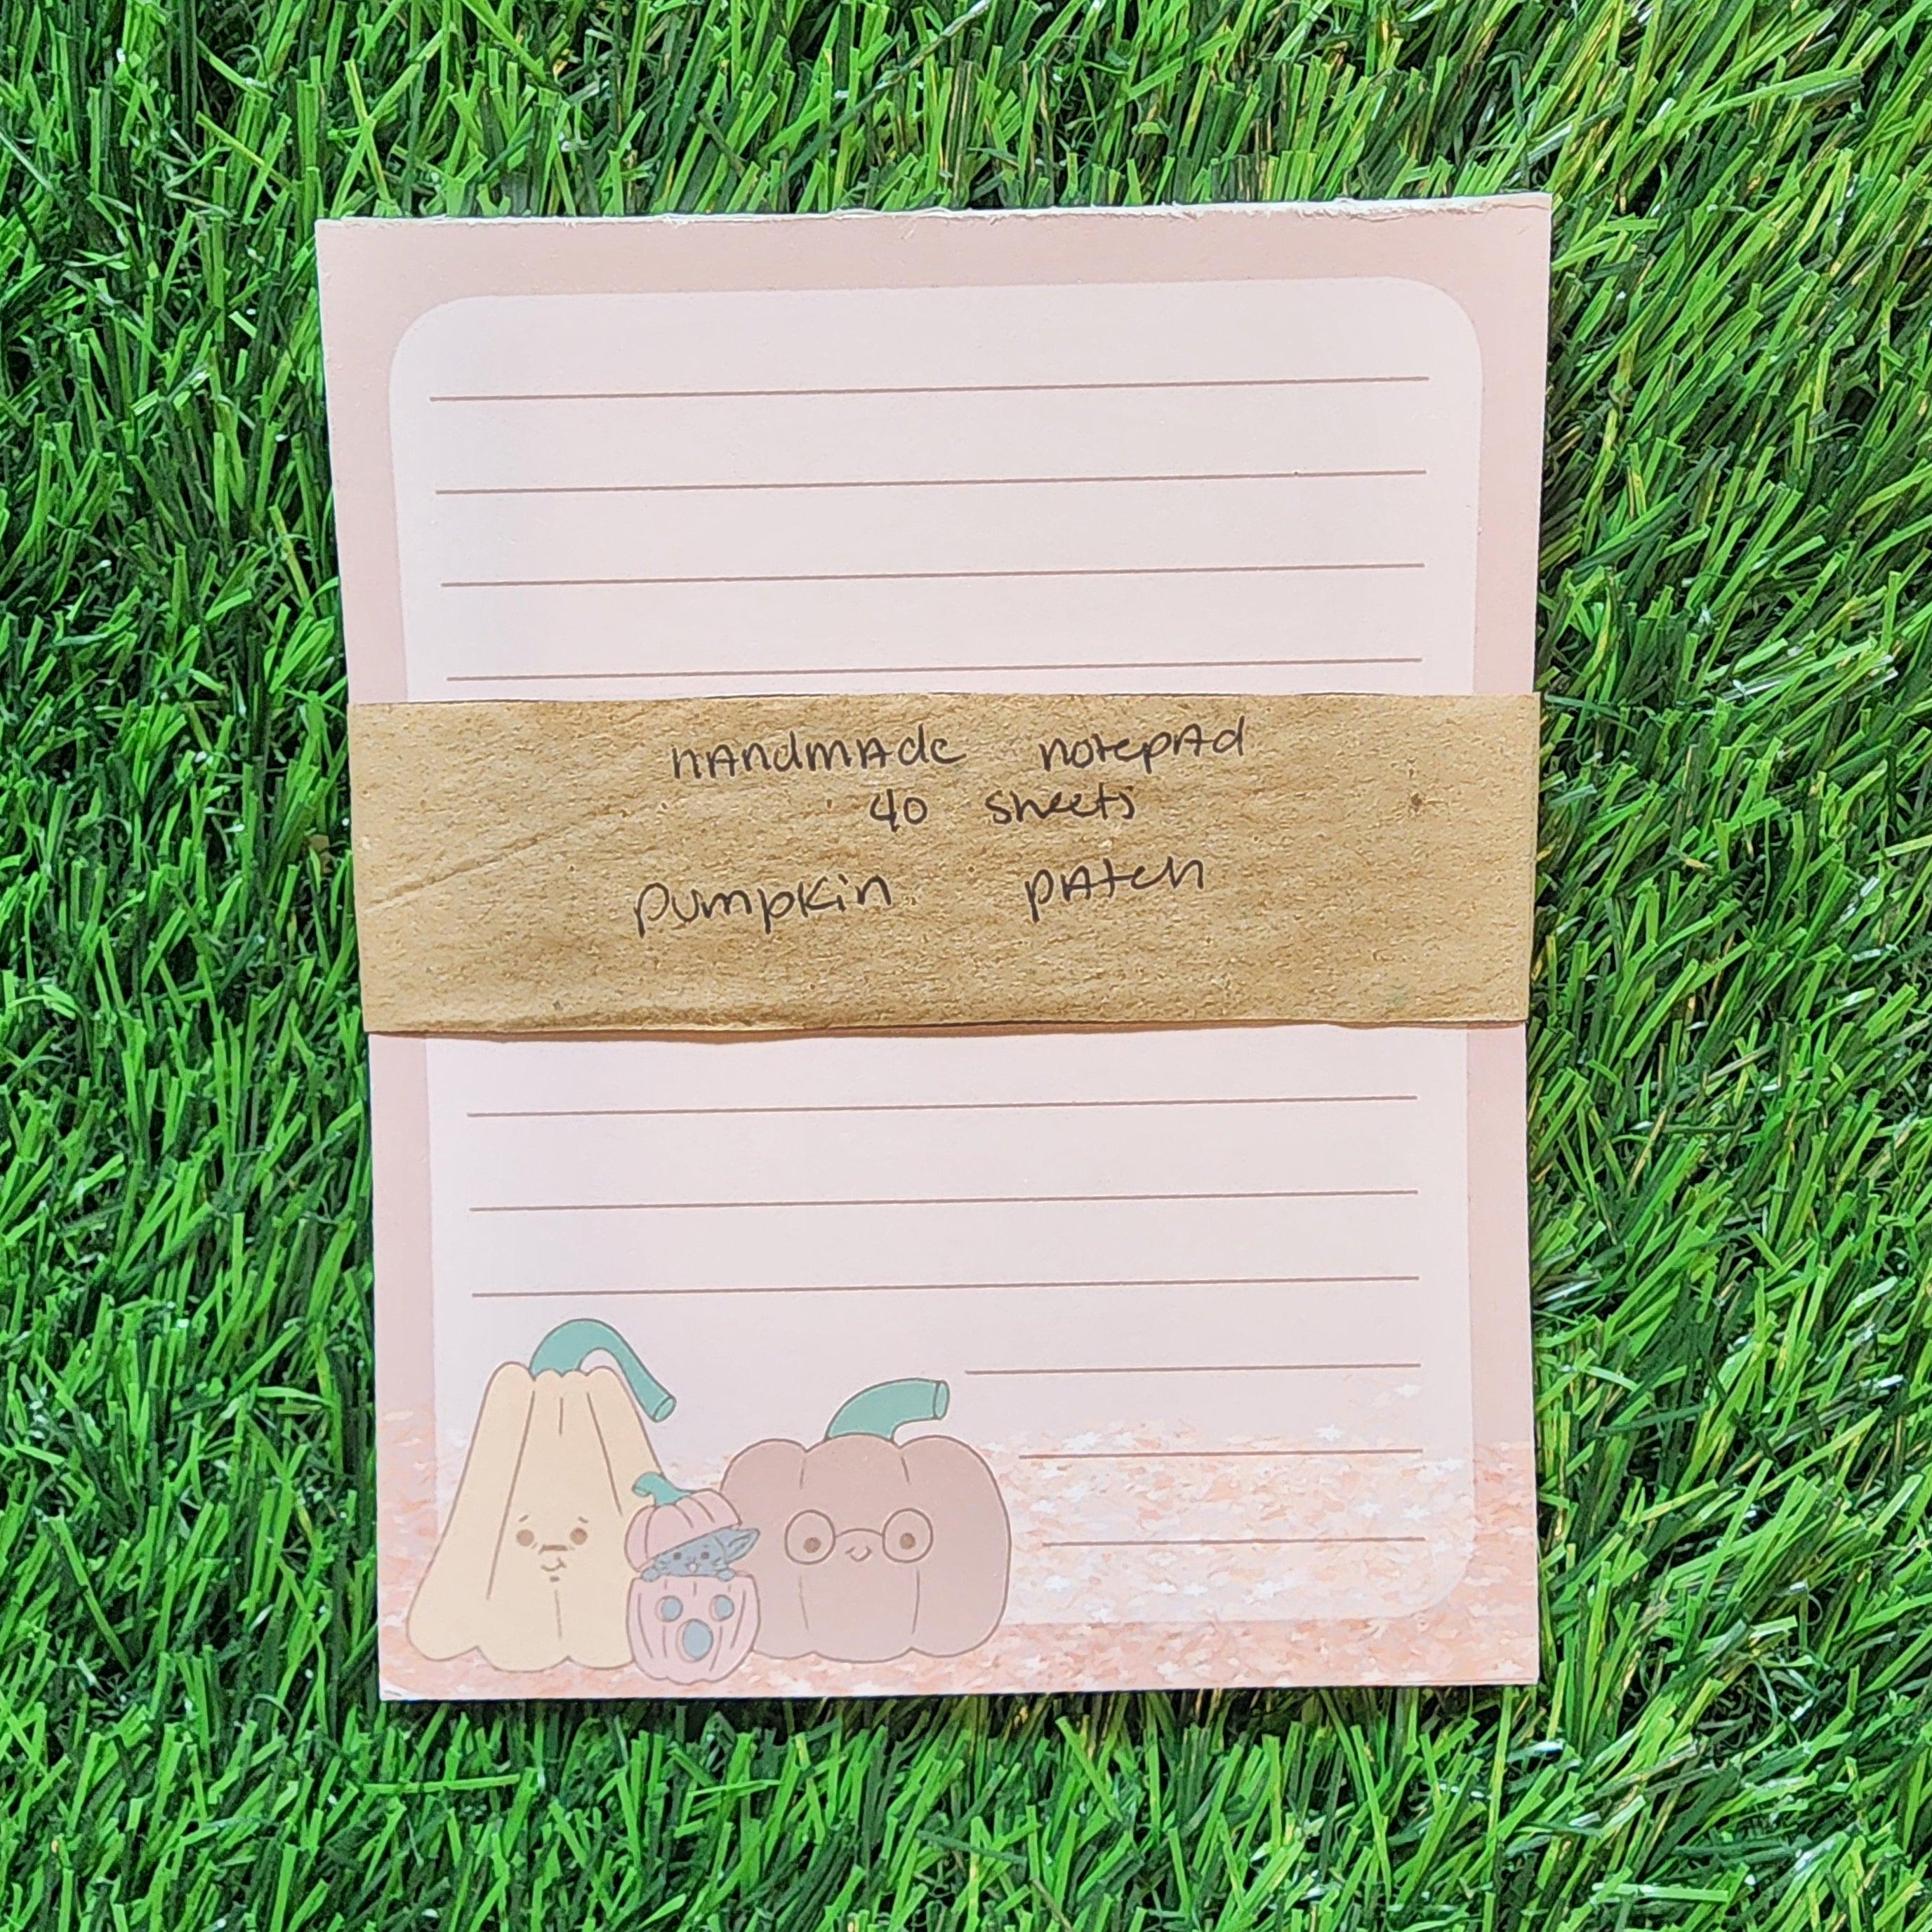 handmade notepad
40 sheets
pumpkin patch